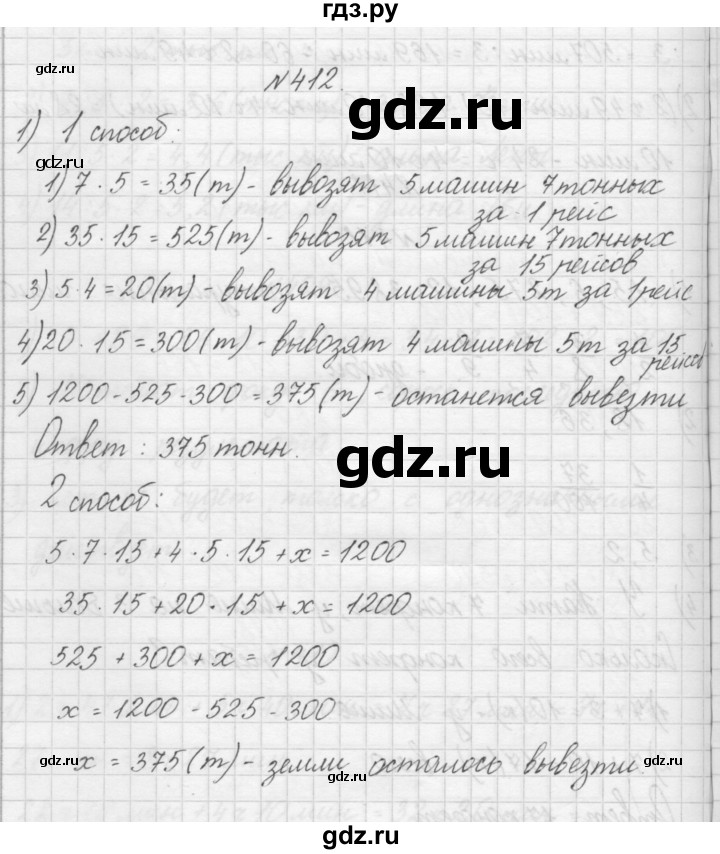 гдз.ру
№412.
1) 1 способ:
1) 7 · 5 = 35(т) - вывозят 5 машин 7 тонных
за 1 рейс
2) 35 · 15 = 525(т) - вывозят 5 машин 7 тонных
за 15 рейсов
3) 5 · 4 = 20(т) - вывозят 4 машины 5т за 1 рейс
4) 20 · 15 = 300(т) - вывозят 4 машины 5т за 15
рейсов
5) 1200 - 525 - 300 = 375(т) - останется вывезти
Ответ: 375 тонн.
2 способ:
5 · 7 · 15 + 4 · 5 · 15 + х = 1200
35 · 15 + 20 · 15 + х = 1200
525 + 300 + х = 1200
х = 1200 - 525 - 300
х = 375(т) - земли осталось вывезти.
gdz.ru
gdz.ru
gdz.ru
gdz.ru
gdz.ru
gdz.ru
gdz.ru
gdz.ru
gdz.ru
gdz.ru
gdz.ru
gdz.ru
gdz.ru
gdz.ru